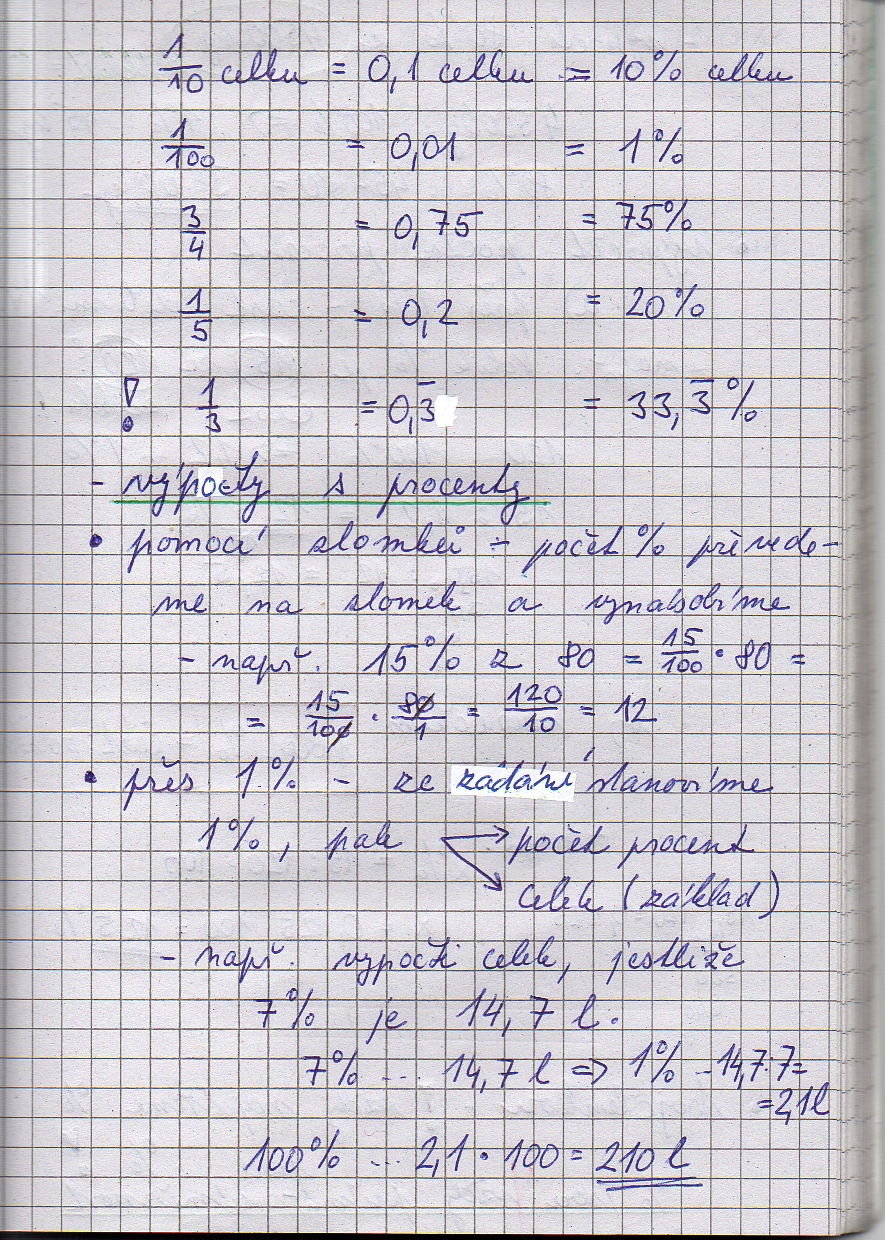 1/10 celku = 0,1 celku = 10% celku
1/100 = 0,01 = 1%
3/4 = 0,75 = 75%
1/5 = 0,2 = 20%
! 1/3 = 0,3̅ = 33,3̅%
- výpočty s procenty
• pomocí zlomků - počet % převede-
me na zlomek a vynásobíme
- např. 15% z 80 = 15/100 · 80 =
= 15/100 · 80/1 = 120/10 = 12
• přes 1% - ze zadání stanovíme
1%, pak → počet procent
→ celek (základ)
- např. vypočti celek, jestliže
7% je 14,7 l.
7% ... 14,7 l ⇒ 1% - 14,7:7=
=2,1l
100% ... 2,1 · 100 = 210 l